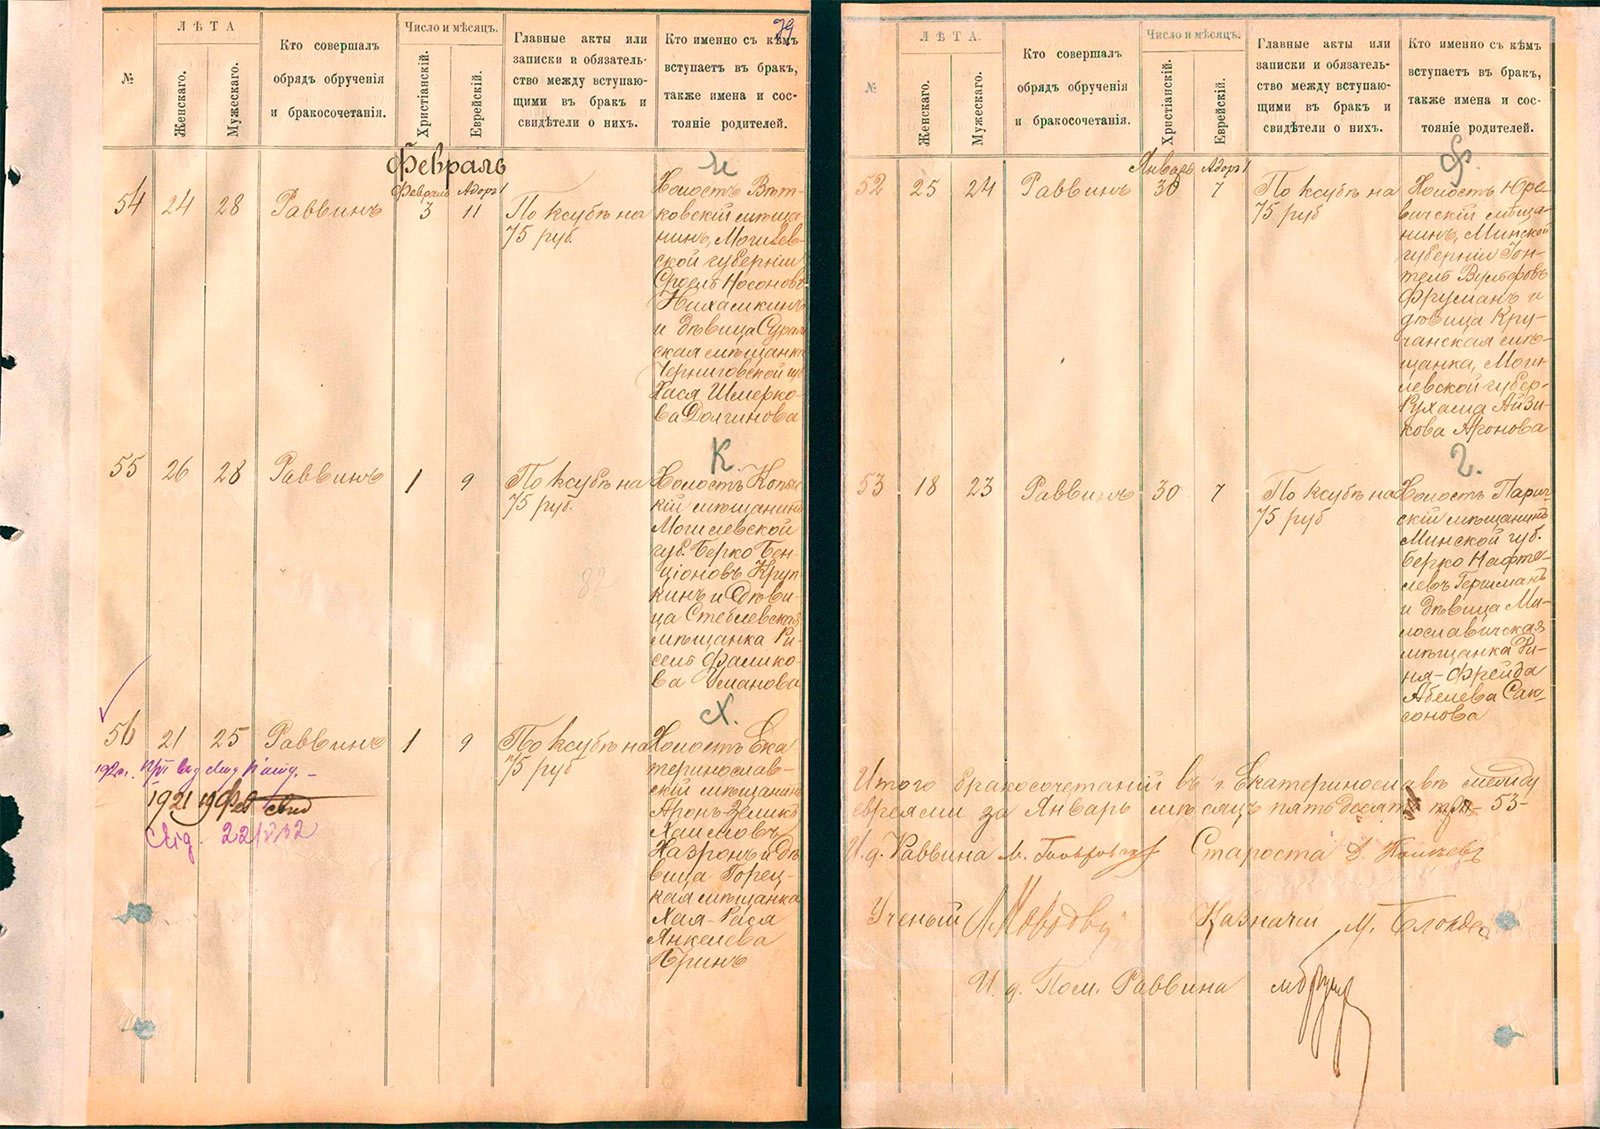 79
№
ЛѢТА
Женскаго.
Мужескаго.
Кто совершалъ
обрядъ обрученія
и бракосочетанія.
Число и мѣсяцъ.
Христіанскій.
Еврейскій.
Главные акты или
записки и обязатель-
ство между вступаю-
щими въ бракъ и
свидѣтели о нихъ.
Кто именно съ кѣмъ
вступаетъ въ бракъ,
также имена и сос-
тояніе родителей.
Февраль
54 24 28 Раввинъ
Февраль 3
Адоръ 1 11
По ксубѣ на
75 руб.
Холостъ Вѣт-
ковскій мѣща-
нинъ, Могилев-
ской губерніи
Сроель Носоновъ
и дѣвица Сураж-
ская мѣщанка
Черниговской г.
Хася Шмерко-
ва Долгинова
55 26 28 Раввинъ 1 9
По ксубѣ на
75 руб.
К.
Холостъ Копыс-
кій мѣщанинъ
Могилевской
губ. Берко Бен-
ціоновъ Круп-
кинъ и дѣви-
ца Стеблевская
мѣщанка Ри-
сель Фалико-
ва Уманова
56 21 25 Раввинъ 1 9
По ксубѣ на
75 руб
Х.
Холостъ Ека-
теринослав-
скій мѣщанинъ
Аронъ-Зеликъ
Хаимовъ
Хазронъ и дѣ-
вица Горец-
кая мѣщанка
Хая-Рася
Янкелева
Бринъ
1921 19 Фев
22/V 32
№
ЛѢТА.
Женскаго.
Мужескаго.
Кто совершалъ
обрядъ обрученія
и бракосочетанія.
Число и мѣсяцъ.
Христіанскій.
Еврейскій.
Главные акты или
записки и обязатель-
ство между вступаю-
щими въ бракъ и
свидѣтели о нихъ.
Кто именно съ кѣмъ
вступаетъ въ бракъ,
также имена и сос-
тояніе родителей.
52 25 24 Раввинъ
Январь 30
Адоръ 1 7
По ксубѣ на
75 руб
Ф.
Холостъ Юре-
вичскій мѣща-
нинъ, Минской
губерніи Гон-
тель Вульфовъ
Фруманъ и
дѣвица Кру-
чанская мѣ-
щанка, Моги-
левской губер-
Рухама Айзи-
кова Аронова
53 18 23 Раввинъ 30 7
По ксубѣ на
75 руб
Г.
Холостъ Парич-
скій мѣщанинъ
Минской губ.
Берко Нафте-
левъ Гершманъ
и дѣвица Ми-
лославичская
мѣщанка Ри-
ня-Фрейда
Абелева Сам-
сонова
Итого бракосочетаній въ г. Екатеринославѣ между
евреями за Январь мѣсяцъ пятьдесятъ три - 53-
И. д. Раввина
Староста
Ученый
Казначей М.
И. д. Пом. Раввина